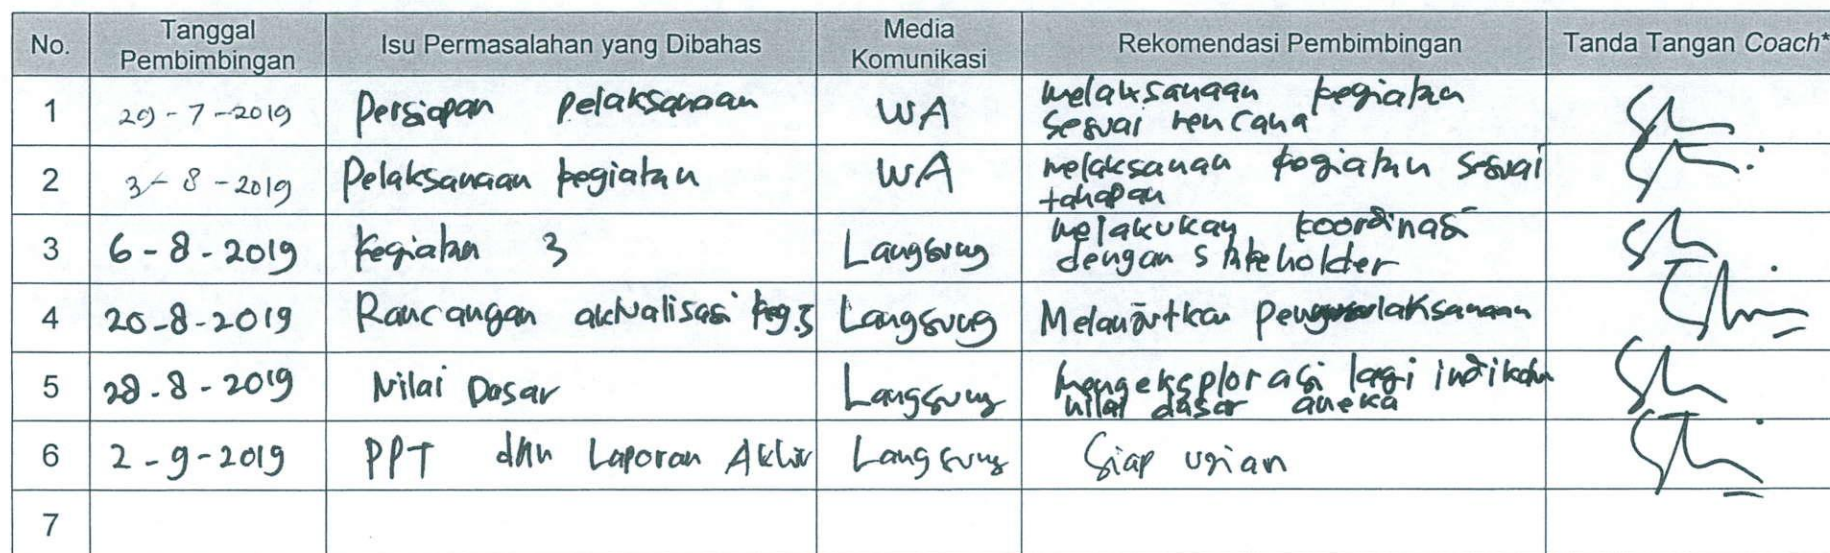 No. Tanggal Pembimbingan Isu Permasalahan yang Dibahas Media Komunikasi Rekomendasi Pembimbingan Tanda Tangan Coach*
1 29-7-2019 Persiapan pelaksanaan WA melaksanaan kegiatan
sesuai rencana
2 3-8-2019 Pelaksanaan kegiatan WA melaksanan kegiatan sesuai
tahapan
3 6-8-2019 kegiatan 3 Langsung melakukan koordinasi
dengan stakeholder
4 20-8-2019 Rancangan aktualisasi keg. Langsung Melanjutkan
5 28-8-2019 Nilai Dasar Langsung mengeksplorasi lagi
nilai dasar aneka
6 2-9-2019 PPT dan Laporan Akhir Langsung Siap ujian
7